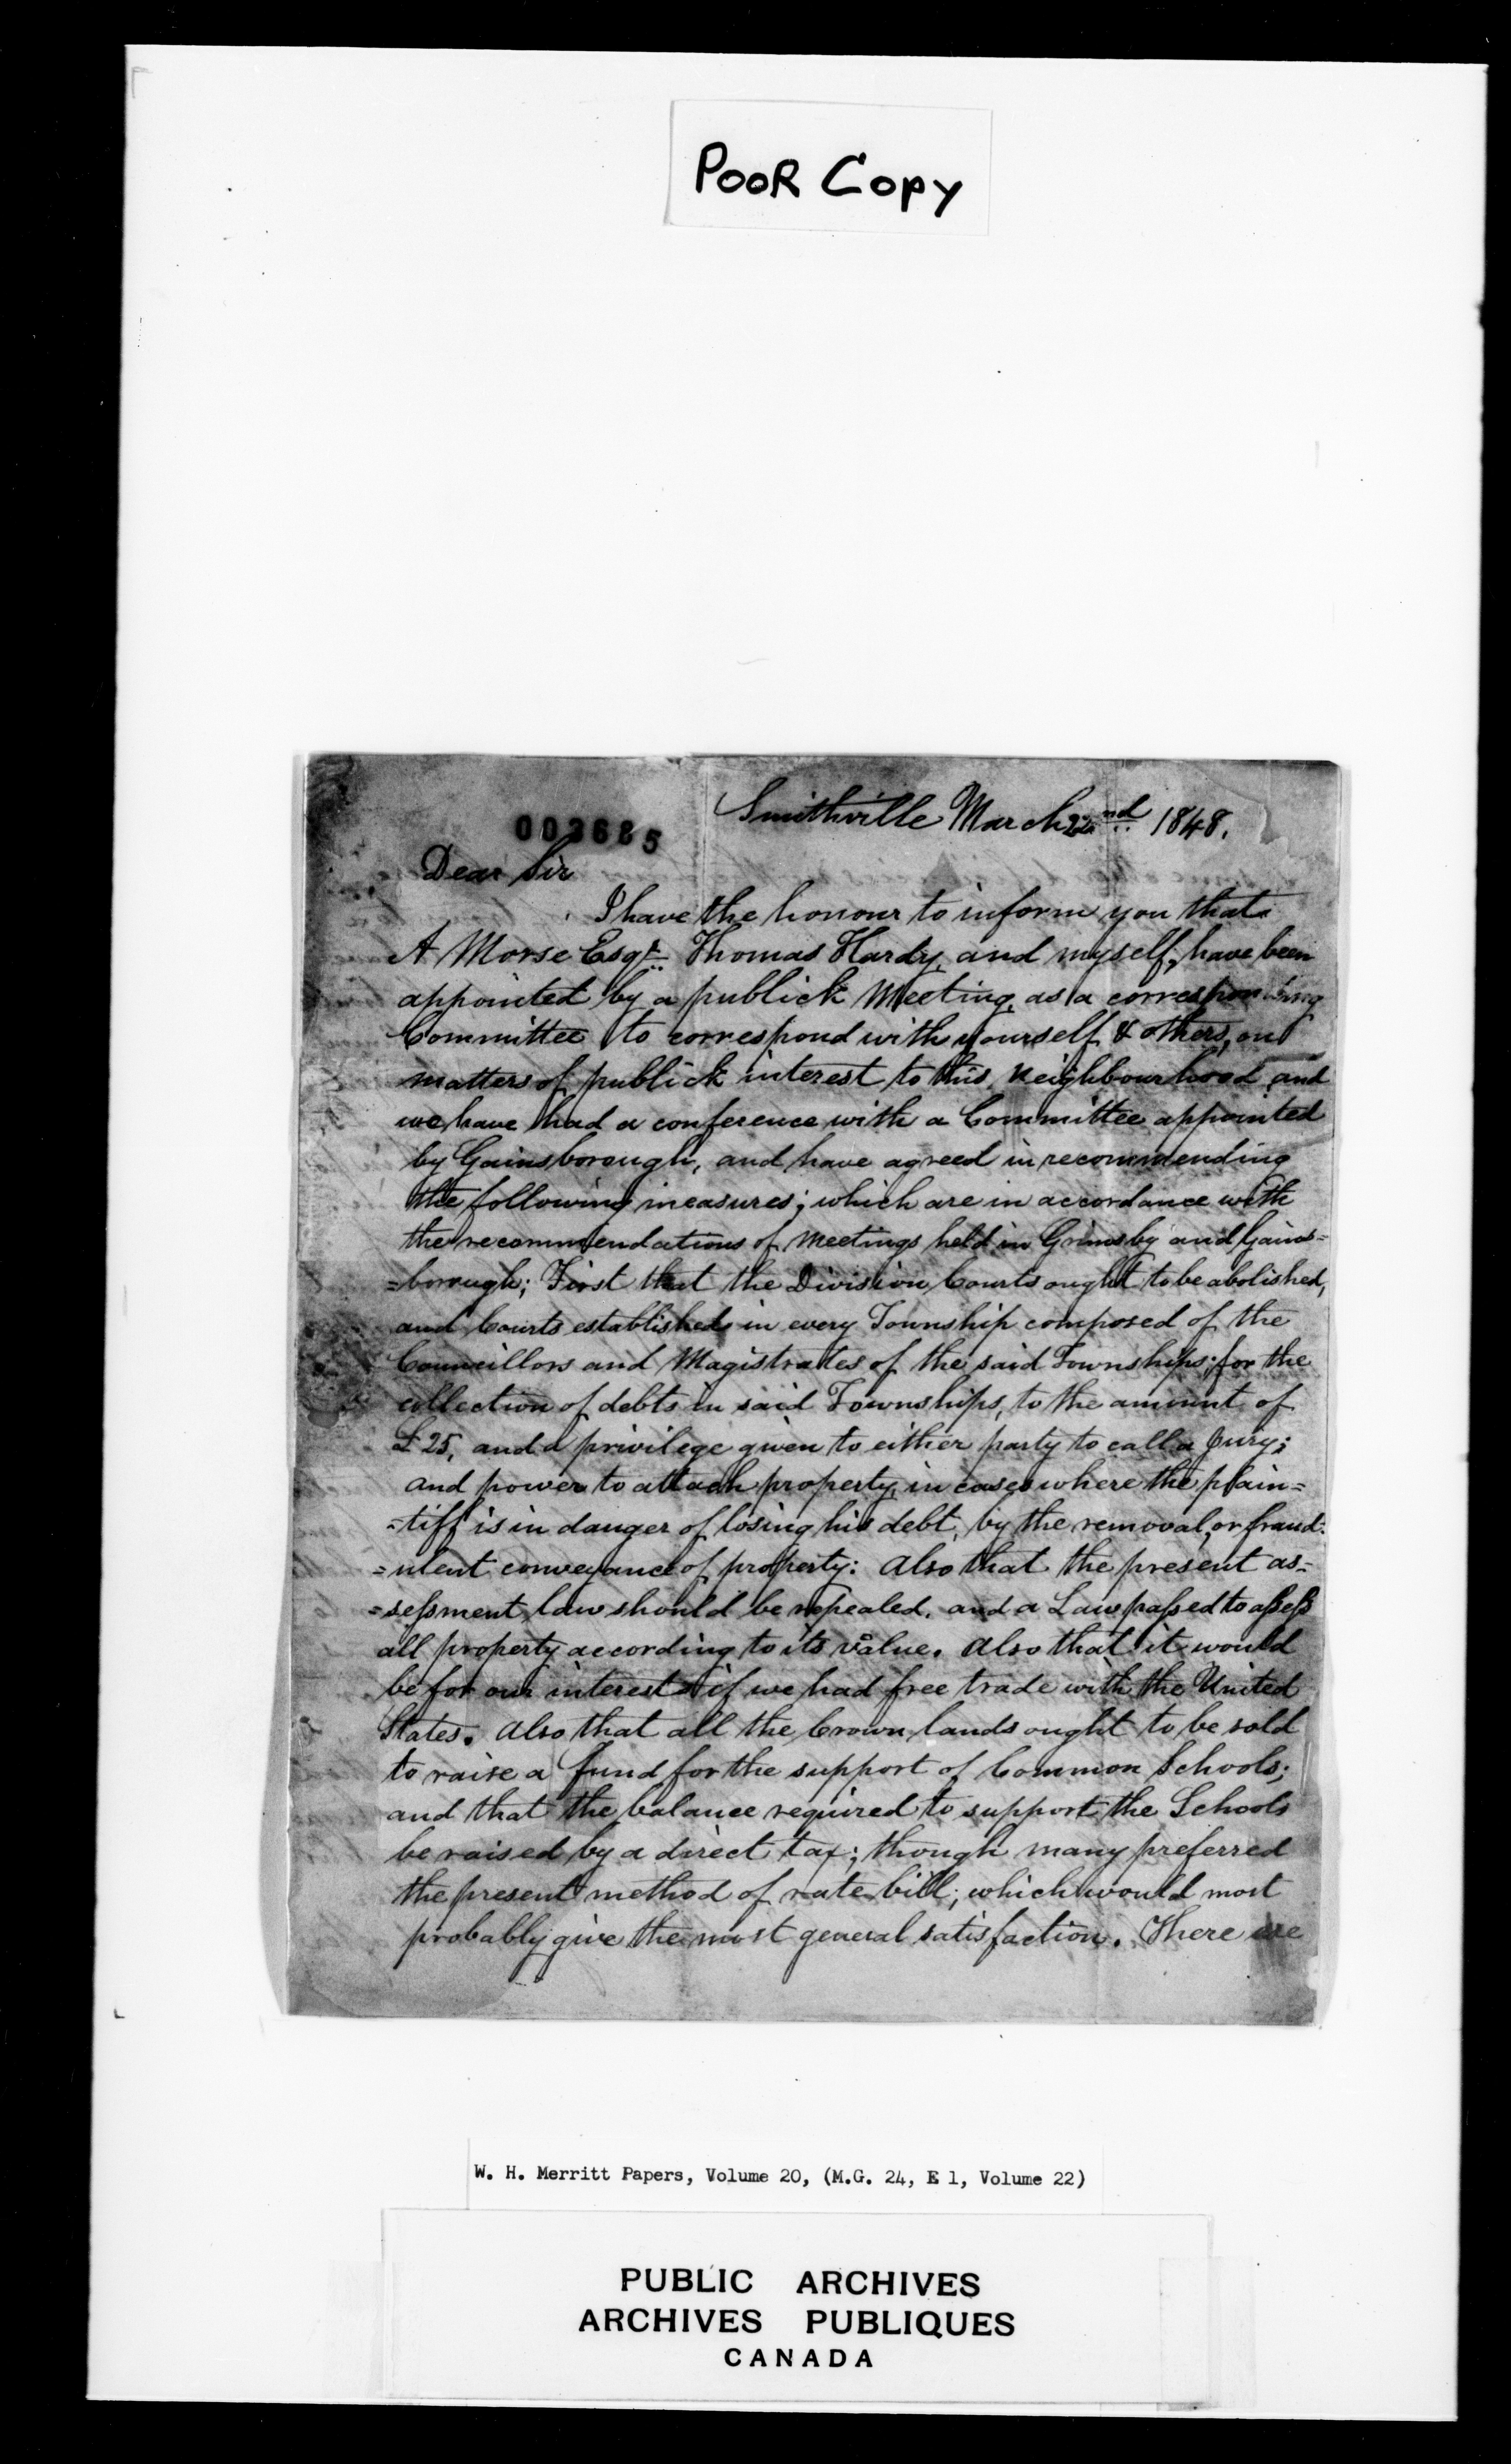 PooR Copy
003685
Smithville March 22nd 1848.
Dear Sir
I have the honour to inform you that
A Morse Esqr. Thomas Hardy, and myself, have been
appointed by a publick Meeting, as a corresponding
Committee to correspond with yourself & others, on
matters of publick interest to this Neighbourhood and
we have had a conference with a Committee appointed
by Gainsborough, and have agreed in recommending
the following measures; which are in accordance with
the recommendations of Meetings held in Grimsby and Gains=
=borough; First that the Division Courts ought to be abolished,
and Courts established in every Township composed of the
Councillors and Magistrates of the said Townships; for the
collection of debts in said Townships, to the amount of
£25, and a privilege given to either party to call a Jury;
and power to attach property, in cases where the plain=
=tiff is in danger of losing his debt, by the removal, or fraud=
=ulent conveyance of property: Also that the present as=
=sessment law should be repealed, and a Law passed to assess
all property according to its value. Also that it would
be for our interest if we had free trade with the United
States. Also that all the Crown lands ought to be sold
to raise a fund for the support of Common Schools;
and that the balance required to support the Schools
be raised by a direct tax; though many preferred
the present method of rate bill; which would most
probably give the most general satisfaction. There are
W. H. Merritt Papers, Volume 20, (M.G. 24, E 1, Volume 22)
PUBLIC ARCHIVES
ARCHIVES PUBLIQUES
CANADA